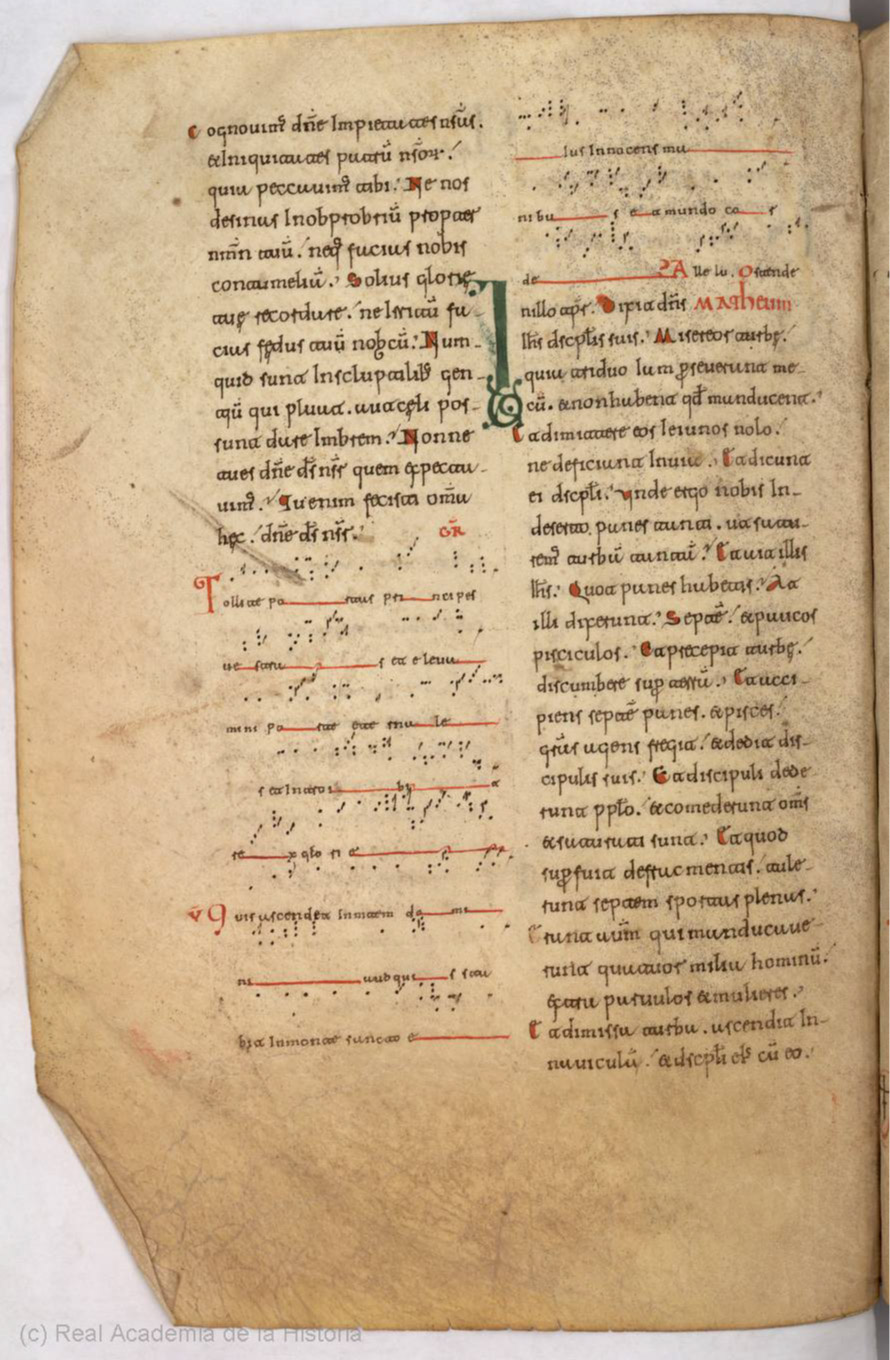 Cognouim᷒ dn̄e Impietates nr̄as.
& Iniquitates patrū nr̄oꝝ.
quia peccauim᷒ tibi. Ne nos
desinas Inobprobriū propter
nm̄n tuū. neq; facias nobis
contumeliā. Solius glorię
tuę recordare. ne Irritū fa
cias fędus tuū nobcū. Num-
quid sunt Insculptilib; gen-
tiū qui pluut. aut cęli pos-
sunt dare Imbrem. Nonne
tu es dn̄e ds̄ nr̄ quem expectau-
im᷒. Tu enim fecisti om̄a
hęc. dn̄e ds̄ nr̄. GR̄
Tollite portas principes
uestras et eleua
mini portae eternale
s et Introibit
rex glorie
V̄ Quis ascendet Inmontem domi
ni aut quis stau
bit Inmonte sancto e
ius Innocens ma
nibus et a mundo cor
de PA lle lu. Ostende
In illo tp̄r. Dixit dn̄s Matheum
Ih̄s discpl̄is suis. Misereor turbę.
quia triduo Iam perseuerunt me-
cū. & non habent qd̄ manducent.
Et dimittere eos Ieiunos nolo.
ne deficiunt Inuia. Et dicunt
ei discpl̄i. Vnde ergo nobis In-
deserto panes tantos. ut satu-
rem᷒ turbā tantā? Et ait illis
Ih̄s. Quot panes habetis. At
illi dixerunt. Septē. & paucos
pisciculos. Et precepit turbę.
discumbere sup terrā. Et acci-
piens septē panes. & pisces.
grās agens fregit. & dedit dis-
cipulis suis. Et discipuli dede
runt pplo. & comederunt om̄s
& saturati sunt. Et quod
supfuit defragmentis. tule-
runt septem sportas plenas.
Erant autem qui manducaue
runt quatuor milia hominū.
extra paruulos & mulieres.
Et dimissa turba. ascendit In-
nauiculā. & discpl̄i ei᷒ cū eo.
(c) Real Academia de la Historia